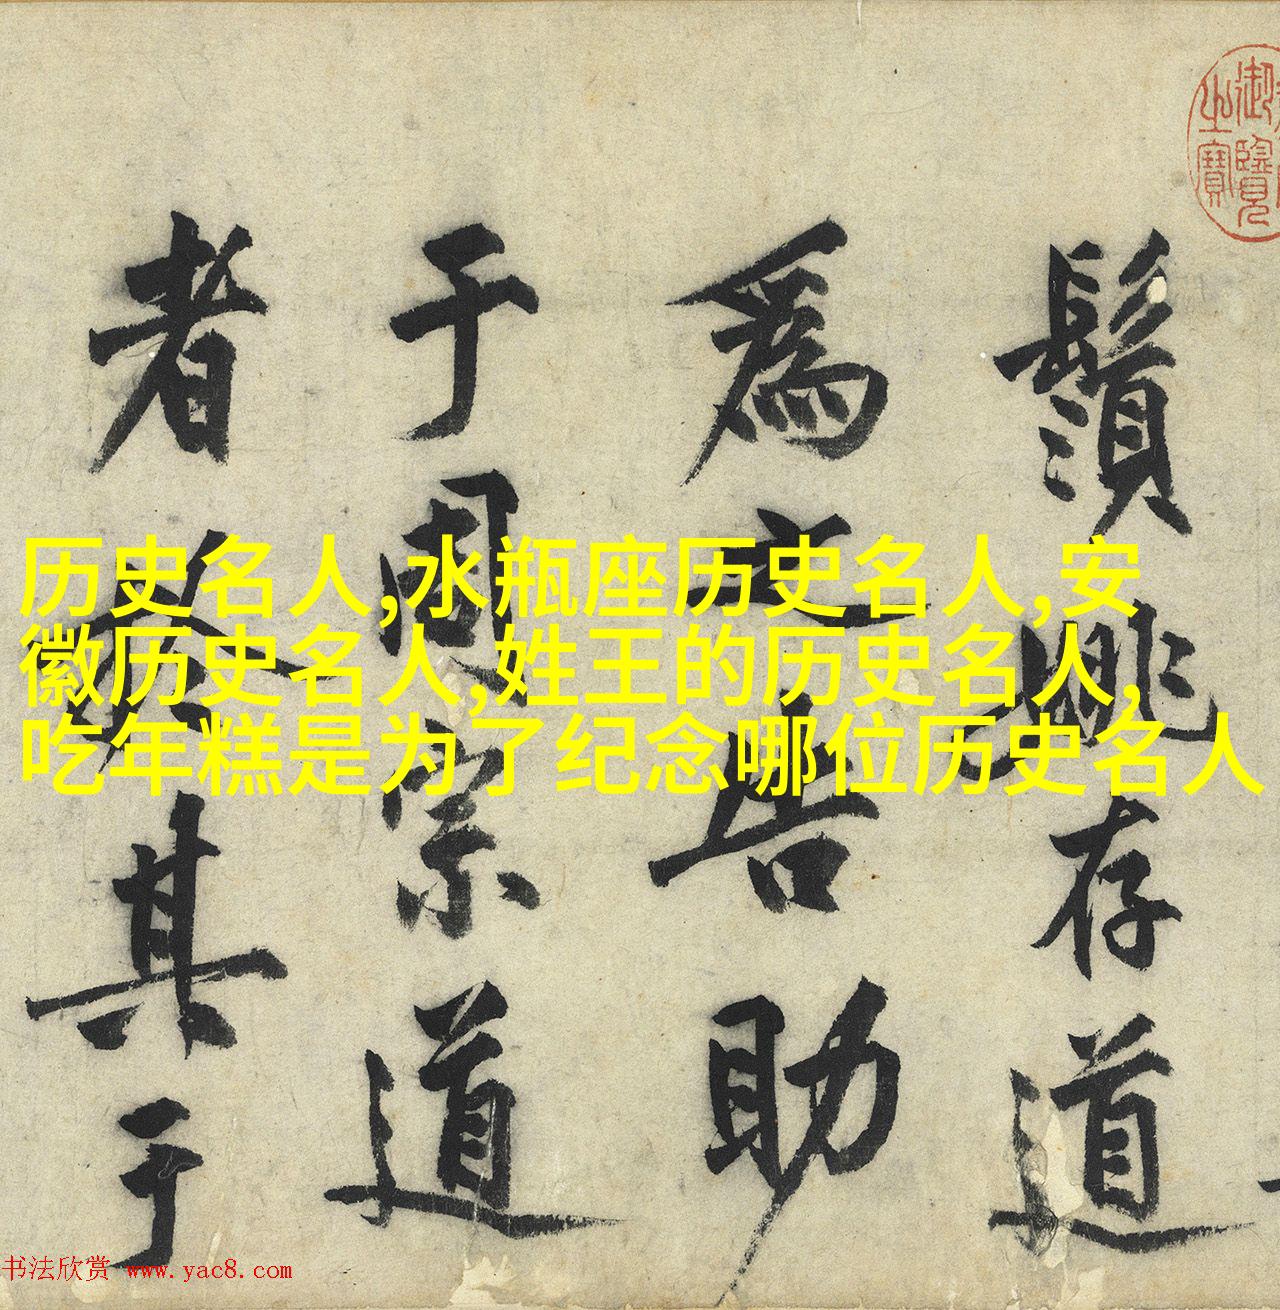 御覽
之寶
鬚姚存道
為之告助
于周宗道
者其于
历史名人,水瓶座历史名人,安
徽历史名人,姓王的历史名人,
吃年糕是为了纪念哪位历史名人
书法欣赏 www.yac8.com